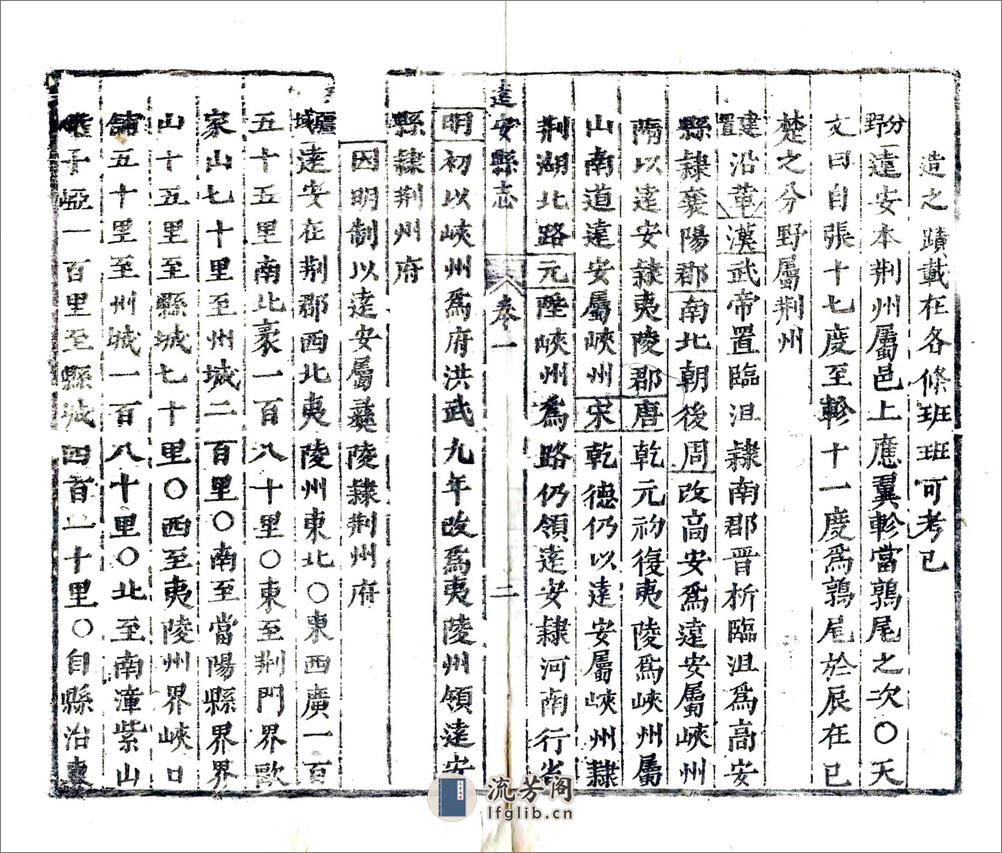 造之蹟載在各條班班可考已
分野 遠安本荆州屬邑上應翼軫當鶉尾之次○天
文曰自張十七度至軫十一度爲鶉尾於辰在巳
楚之分野屬荆州
建置沿革漢武帝置臨沮隸南郡晋析臨沮爲高安
縣隸襄陽郡南北朝後周改高安爲遠安屬峽州
隋以遠安隸夷陵郡唐乾元初復夷陵爲峽州屬
山南道遠安屬峽州宋乾德仍以遠安屬峽州隸
荆湖北路元陞峽州爲路仍領遠安隸河南行省
遠安縣志 卷一 二
明初以峽州爲府洪武九年改爲夷陵州領遠安
縣隸荆州府
因明制以遠安屬彝陵隸荆州府
疆域 遠安在荆郡西北夷陵州東北○東西廣一百
五十五里南北袤一百八十里○東至荆門界歐
家山七十里至州城二百里○南至當陽縣界界
山十五里至縣城七十里○西至夷陵州界峽口
舖五十里至州城一百八十里○北至南漳紫山
子埡一百里至縣城四百二十里○自縣治東
流芳阁
lfglib.cn